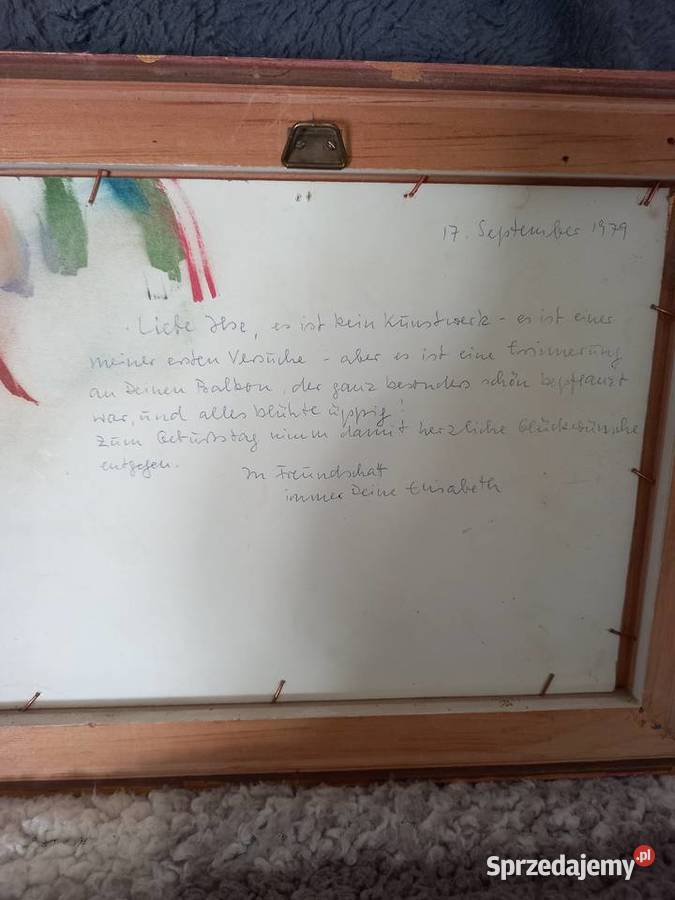 17. September 1979
Liebe Ilse, es ist kein Kunstwerk - es ist einer
meiner ersten Versuche - aber es ist eine Erinnerung
an Deinen Balkon, der ganz besonders schön bepflanzt
war, und alles blühte üppig!
Zum Geburtstag nimm damit herzliche Glückwünsche
entgegen.
In Freundschaft
immer Deine Elisabeth
Sprzedajemy.pl